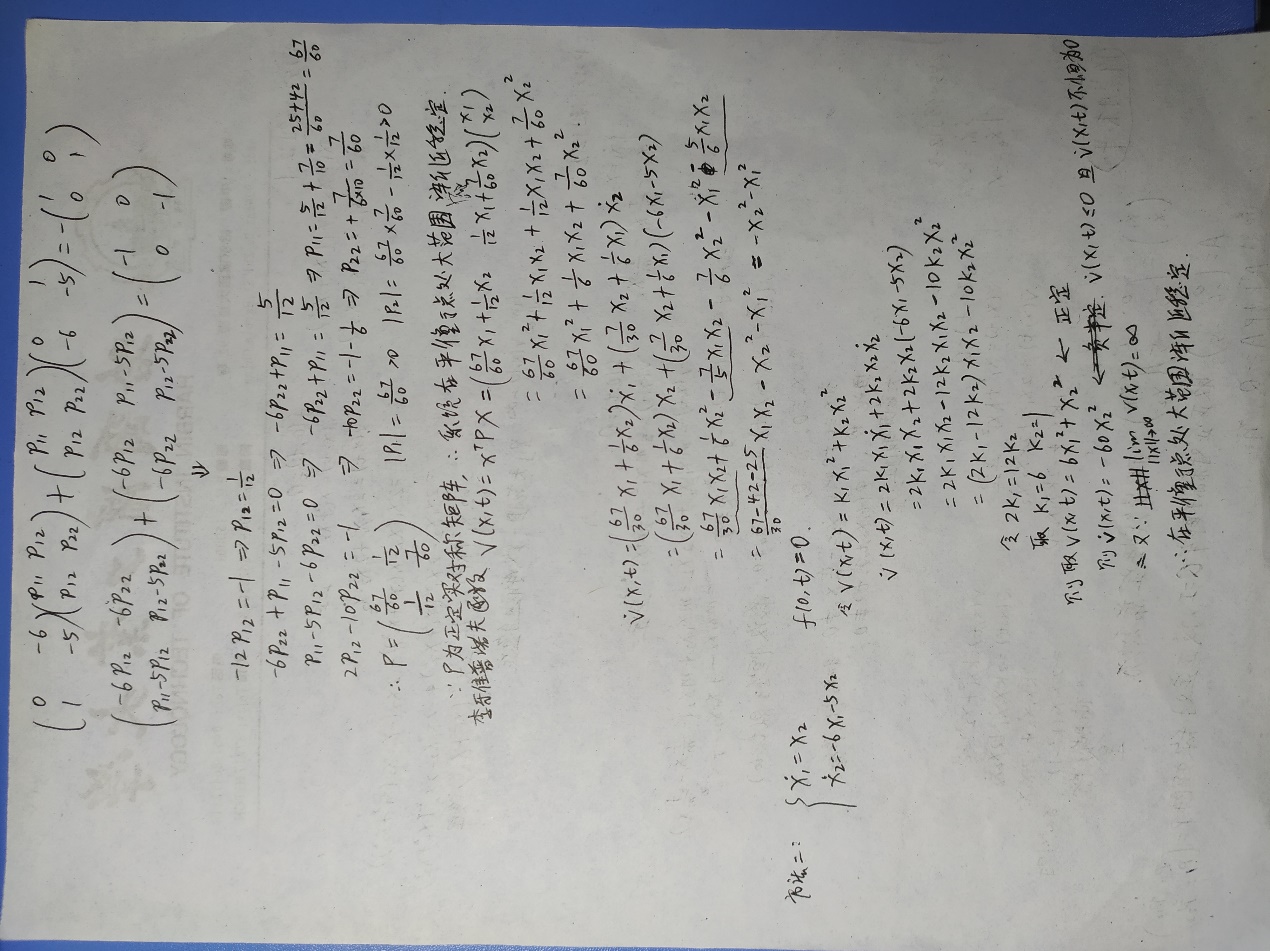 (0 -6; 1 -5)(P11 P12; P12 P22) + (P11 P12; P12 P22)(0 1; -6 -5) = -(1 0; 0 1)
(-6P12 -6P22; P11-5P12 P12-5P22) + (-6P12 P11-5P12; -6P22 P12-5P22) = (-1 0; 0 -1)
⇓
-12P12 = -1 ⇒ P12 = 1/12
-6P22 + P11 - 5P12 = 0 ⇒ -6P22 + P11 = 5/12
P11 - 5P12 - 6P22 = 0 ⇒ -6P22 + P11 = 5/12 ⇒ P11 = 5/12 + 7/10 = (25+42)/60 = 67/60
2P12 - 10P22 = -1 ⇒ -10P22 = -1 - 1/6 ⇒ P22 = + 7/(6×10) = 7/60
∴ P = (67/60 1/12; 1/12 7/60) |P1| = 67/60 > 0 |P2| = 67/60 × 7/60 - 1/12 × 1/12 > 0
∵ P为正定实对称矩阵, ∴ 系统在平衡点处大范围渐近稳定.
李雅普诺夫函数 V(x,t) = x^T P X = (67/60 x1 + 1/12 x2 1/12 x1 + 7/60 x2)(x1; x2)
= 67/60 x1² + 1/12 x1x2 + 1/12 x1x2 + 7/60 x2²
= 67/60 x1² + 1/6 x1x2 + 7/60 x2².
V̇(x,t) = (67/30 x1 + 1/6 x2)ẋ1 + (7/30 x2 + 1/6 x1)ẋ2
= (67/30 x1 + 1/6 x2)x2 + (7/30 x2 + 1/6 x1)(-6x1-5x2)
= 67/30 x1x2 + 1/6 x2² - 7/5 x1x2 - 7/6 x2² - x1² - 5/6 x1x2
= (67-42-25)/30 x1x2 - x2² - x1² = -x2² - x1²
方法二: { ẋ1 = x2 f(0,t) = 0.
ẋ2 = -6x1-5x2
令 V(x,t) = K1x1² + K2x2²
V̇(x,t) = 2K1x1ẋ1 + 2K2x2ẋ2
= 2K1x1x2 + 2K2x2(-6x1-5x2)
= 2K1x1x2 - 12K2x1x2 - 10K2x2²
= (2K1-12K2)x1x2 - 10K2x2²
令 2K1 = 12K2
取 K1=6 K2=1
则取 V(x,t) = 6x1² + x2² ← 正定
则 V̇(x,t) = -60x2² ← 负半定. V̇(x,t) ≤ 0 且 V̇(x,t)不恒为0
又∵ lim ||x||→∞ V(x,t) = ∞
∴ 在平衡点处大范围渐近稳定.